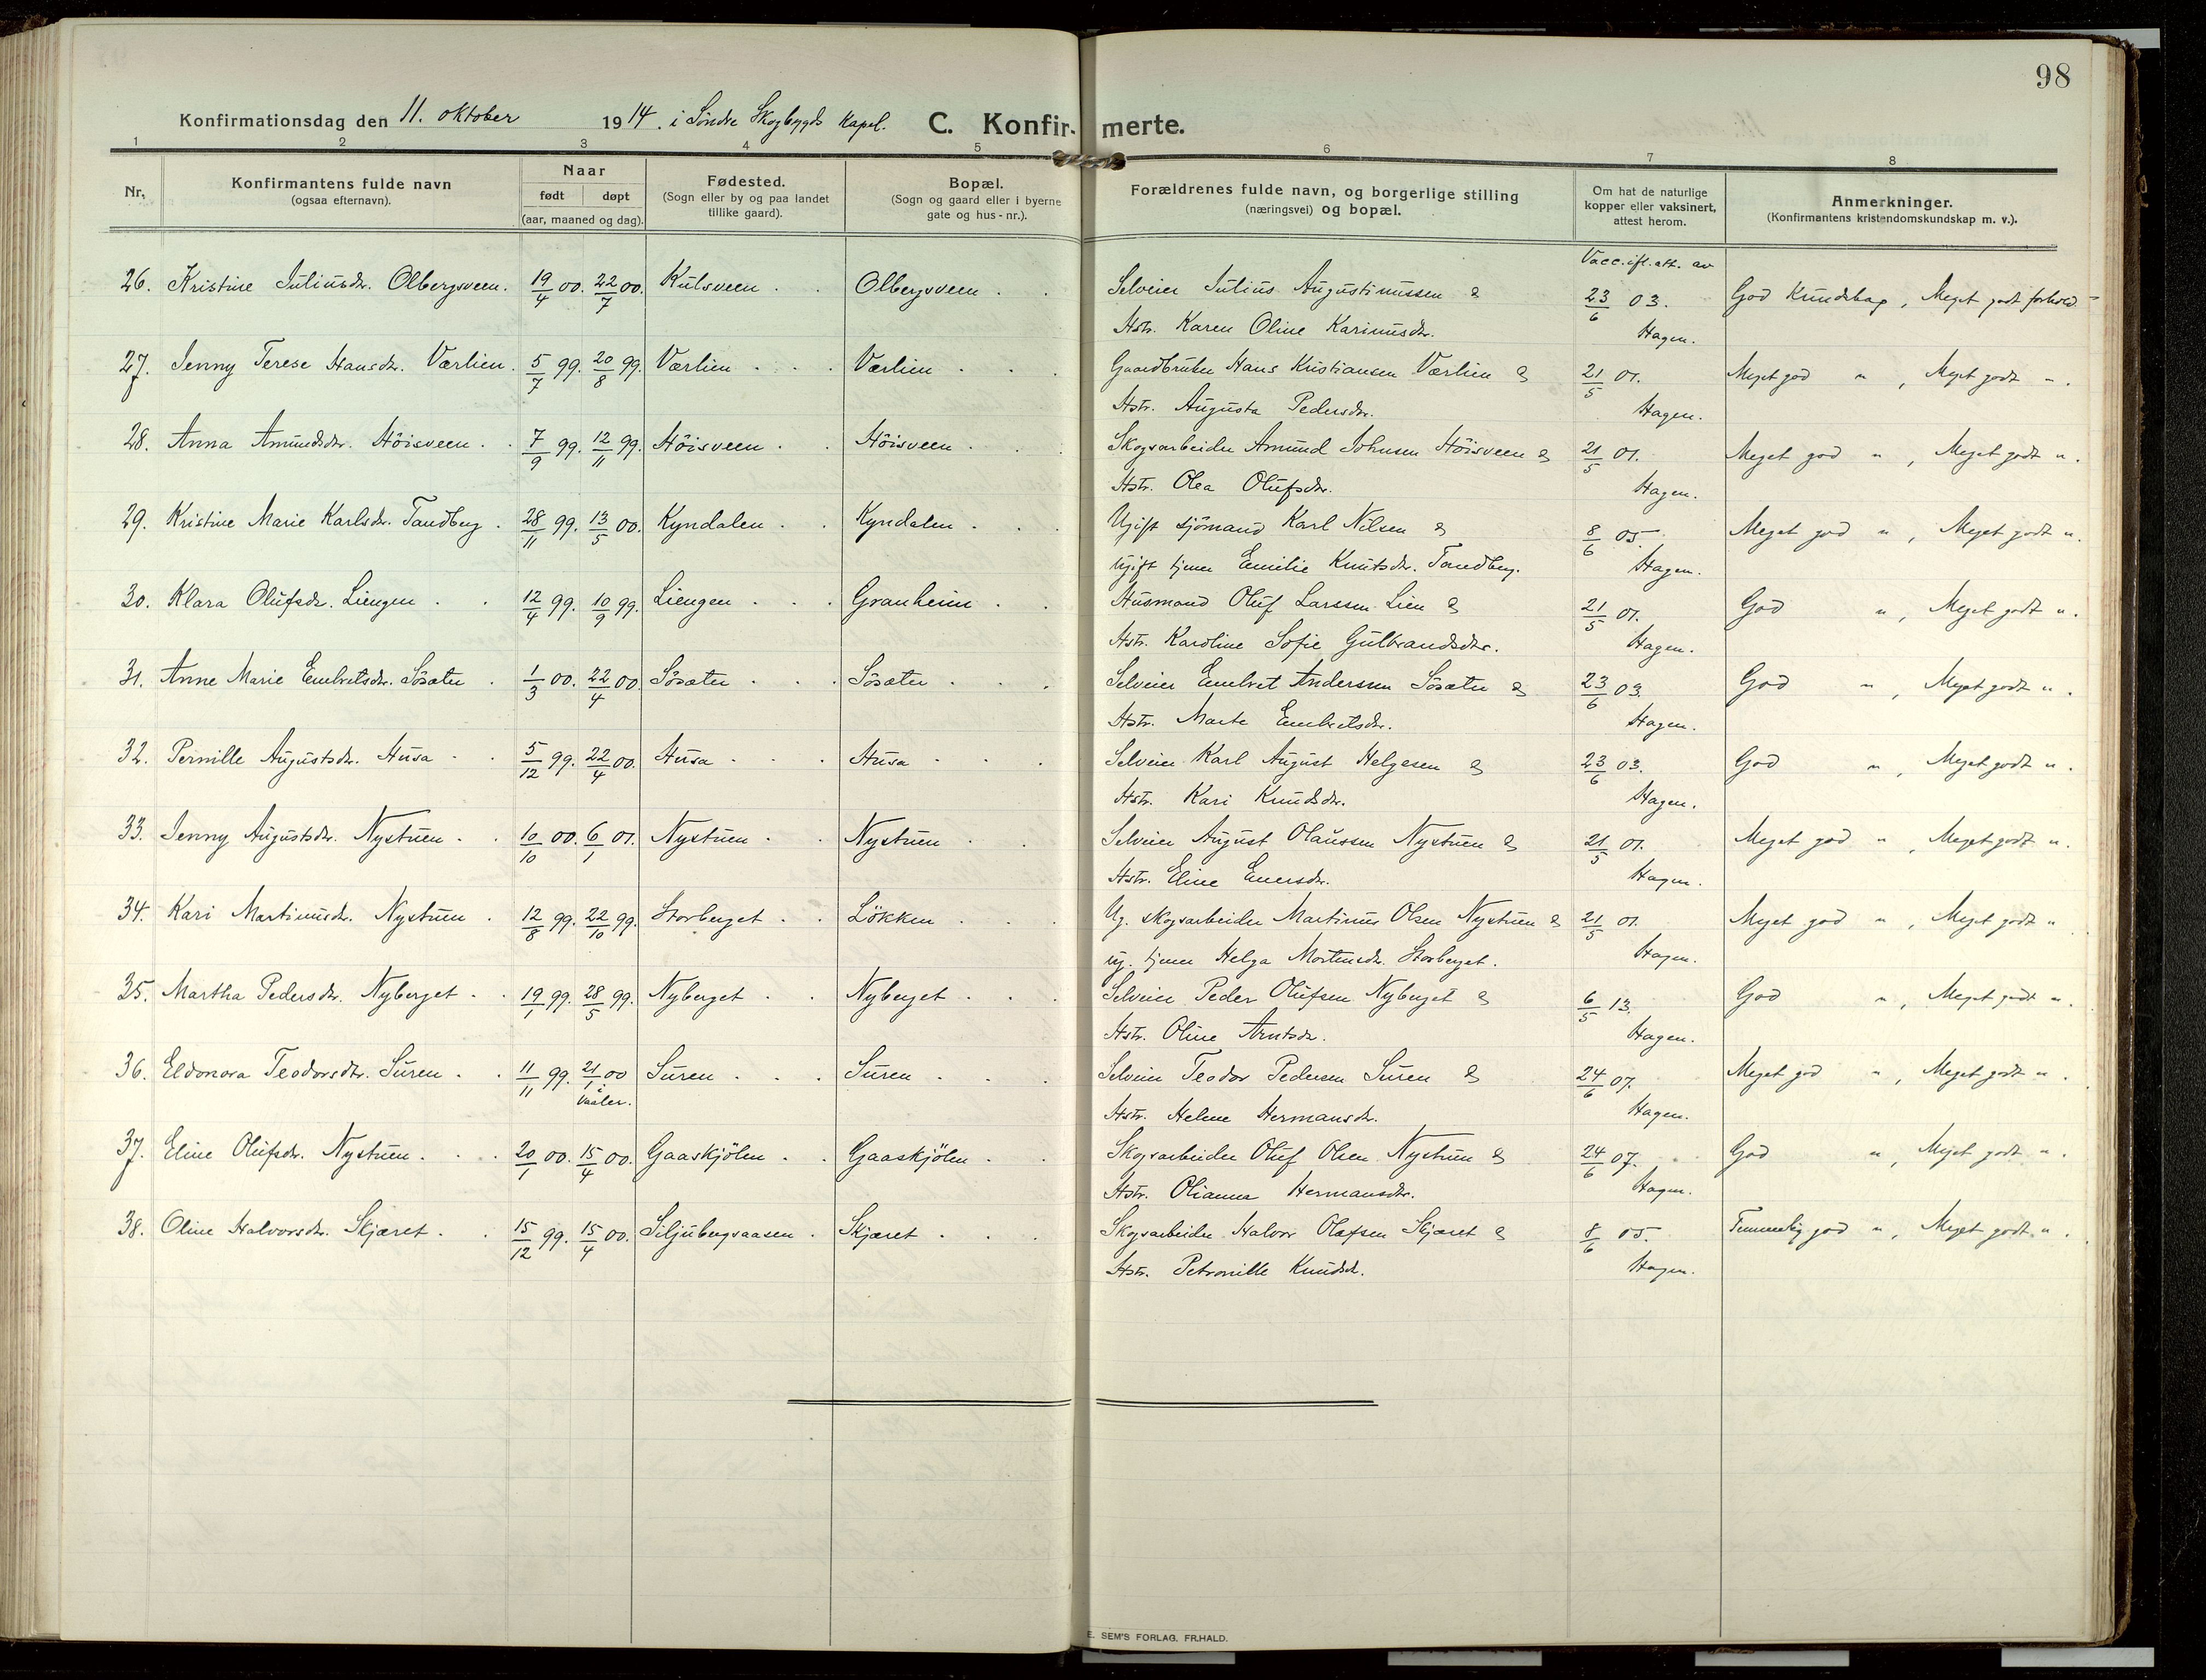 98
Konfirmationsdag den 11. oktober 1914. i Söndre Skogbygds Kapel. C. Konfirmerte.
1 2 3 4 5 6 7 8
Nr. Konfirmantens fulde navn (ogsaa efternavn). Naar født døpt (aar, maaned og dag). Fødested. (Sogn eller by og paa landet tillike gaard). Bopæl. (Sogn og gaard eller i byerne gate og hus-nr.). Forældrenes fulde navn, og borgerlige stilling (næringsvei) og bopæl. Om hat de naturlige kopper eller vaksinert, attest herom. Anmerkninger. (Konfirmantens kristendomskundskap m. v.).
Vacc. ifl. att. av
26. Kristine Juliusdtr. Olbergsveen. 19/4 00. 22/7 00. Kulsveen . . Olbergsveen . . Selveier Julius Augustinussen & 23/6 03. God Kundskap, Meget godt forhold
Hstr. Karen Oline Karinusdtr. Hagen.
27. Jenny Terese Hansdtr. Værlien. 5/7 99. 20/8 99. Værlien . . . Værlien . . . Gaardbruker Hans Kristiansen Værlien & 21/5 01. Meget god " , Meget godt " .
Hstr. Augusta Pedersdtr. Hagen.
28. Anna Amundsdtr. Höisveen . . 7/9 99. 12/11 99. Höisveen . . Höisveen . . . Skogsarbeider Amund Johnsen Höisveen & 21/5 01. Meget god " , Meget godt " .
Hstr. Olea Olufsdtr. Hagen.
29. Kristine Marie Karlsdtr. Tandberg . 28/11 99. 13/5 00. Kyndalen . . Kyndalen . . . Ugift sjömand Karl Nilsen & 8/6 05. Meget god " , Meget godt " .
Ugift tjener Emilie Knutsdtr. Tandberg. Hagen.
30. Klara Olufsdr. Liengen . . 12/4 99. 10/9 99. Liengen . . . Granheim . . Husmand Oluf Larssen Lien & 21/5 01. God " , Meget godt " .
Hstr. Karoline Sofie Gulbrandsdtr. Hagen.
31. Anne Marie Embretsdr. Sösæter . 1/3 00. 22/4 00 Sösæter . . . Sösæter . . . Selveier Embret Andersen Sösæter & 23/6 03. God " , Meget godt " .
Hstr. Marte Embretsdr. Hagen.
32. Pernille Augustsdtr. Husa . . 5/12 99. 22/4 00. Husa . . . Husa . . . Selveier Karl August Helgesen & 23/6 03. God " , Meget godt " .
Hstr. Kari Knudsdtr. Hagen.
33. Jenny Augustsdtr. Nystuen . . 10/10 00. 6/1 01. Nystuen . . Nystuen . . Selveier August Olaussen Nystuen & 21/5 01. Meget god " , Meget godt " .
Hstr. Eline Enersdr. Hagen.
34. Kari Martinusdr. Nystuen . 12/8 99. 22/10 99. Storberget . . Lökken . . . Ug. skogsarbeider Martinus Olsen Nystuen & 21/5 01. Meget god " , Meget godt " .
ug. tjener Helga Mortensdr. Storberget. Hagen.
35. Martha Pedersdtr. Nyberget . . 19/1 99. 28/5 99. Nyberget . . Nyberget . . . Selveier Peder Olufsen Nyberget & 6/5 13. God " , Meget godt " .
Hstr. Oline Arntsdr. Hagen.
36. Eldonora Teodorsdtr. Suren . . 11/11 99. 21/1 00 i Vaaler. Suren . . . Suren . . . Selveier Teodor Pedersen Suren & 24/6 07. Meget god " , Meget godt " .
Hstr. Helene Hermansdtr. Hagen.
37. Eline Olufsdr. Nystuen . . . 20/1 00. 15/4 00. Gaaskjölen . . Gaaskjölen . . Skogsarbeider Oluf Olsen Nystuen & 24/6 07. God " , Meget godt " .
Hstr. Olianna Hermansdtr. Hagen.
38. Oline Halvorsdtr. Skjæret . . 15/12 99. 15/4 00. Siljubergsaasen . Skjæret . . . Skogsarbeider Halvor Olafsen Skjæret & 8/6 05. Temmelig god " , Meget godt " .
Hstr. Petronille Knudsd. Hagen.
E. SEM'S FORLAG, FR.HALD.